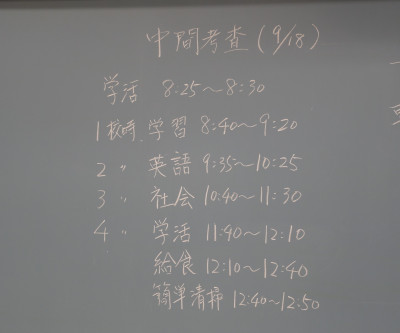 中間考査(9/18)
学活 8.25～8:30
1校時、学習 8:40～9:20
2 〃 英語 9:35～10:25
3 〃 社会 10:40～11:30
4 〃 学活 11:40～12:10
給食 12:10～12:40
簡単清掃 12:40～12.50